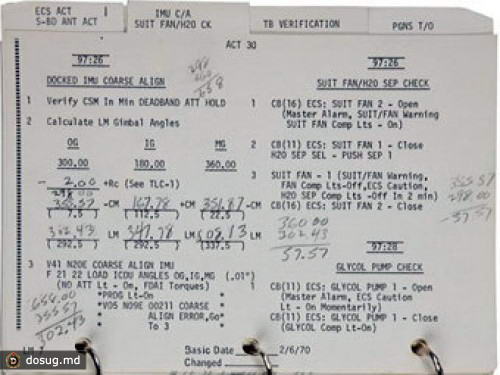 ECS ACT
S-BD ANT ACT
IMU C/A
SUIT FAN/H2O CK
TB VERIFICATION
PGNS T/O
ACT 30
97:26
DOCKED IMU COARSE ALIGN
298
360
658
1 Verify CSM In Min DEADBAND ATT HOLD
2 Calculate LM Gimbal Angles
OG IG MG
300.00 180.00 360.00
- 2.00 +Rc (See TLC-1)
298.00
355.57 -CM 167.78 +CM 351.87 -CM
( 7.5 ) (112.5 ) ( 22.5 )
302.43 LM 347.78 LM 08.13 LM
(292.5 ) (292.5 ) (337.5 )
3 V41 N20E COARSE ALIGN IMU
F 21 22 LOAD ICDU ANGLES OG,IG,MG (.01°)
(NO ATT Lt - On, FDAI Torques)
*PROG Lt-On *
*V05 N09E 00211 COARSE *
ALIGN ERROR,Go*
To 3 *
658.00
355.57
302.43
97:26
SUIT FAN/H2O SEP CHECK
1 CB(16) ECS: SUIT FAN 2 - Open
(Master Alarm, SUIT/FAN Warning
SUIT FAN Comp Lts - On)
2 CB(11) ECS: SUIT FAN 1 - Close
H2O SEP SEL - PUSH SEP 1
3 SUIT FAN - 1 (SUIT/FAN Warning,
FAN Comp Lts-Off,ECS Caution,
H2O SEP Comp Lts -Off In 2 min)
CB(16) ECS: SUIT FAN 2 - Close
355.57
298.00
57.57
360.00
302.43
57.57
97:28
GLYCOL PUMP CHECK
1 CB(11) ECS: GLYCOL PUMP 1 - Open
(Master Alarm, ECS Caution
Lt - On Momentarily)
CB(11) ECS: GLYCOL PUMP 1 - Close
(GLYCOL Comp Lt-On)
Basic Date 2/6/70
Changed
dosug.md